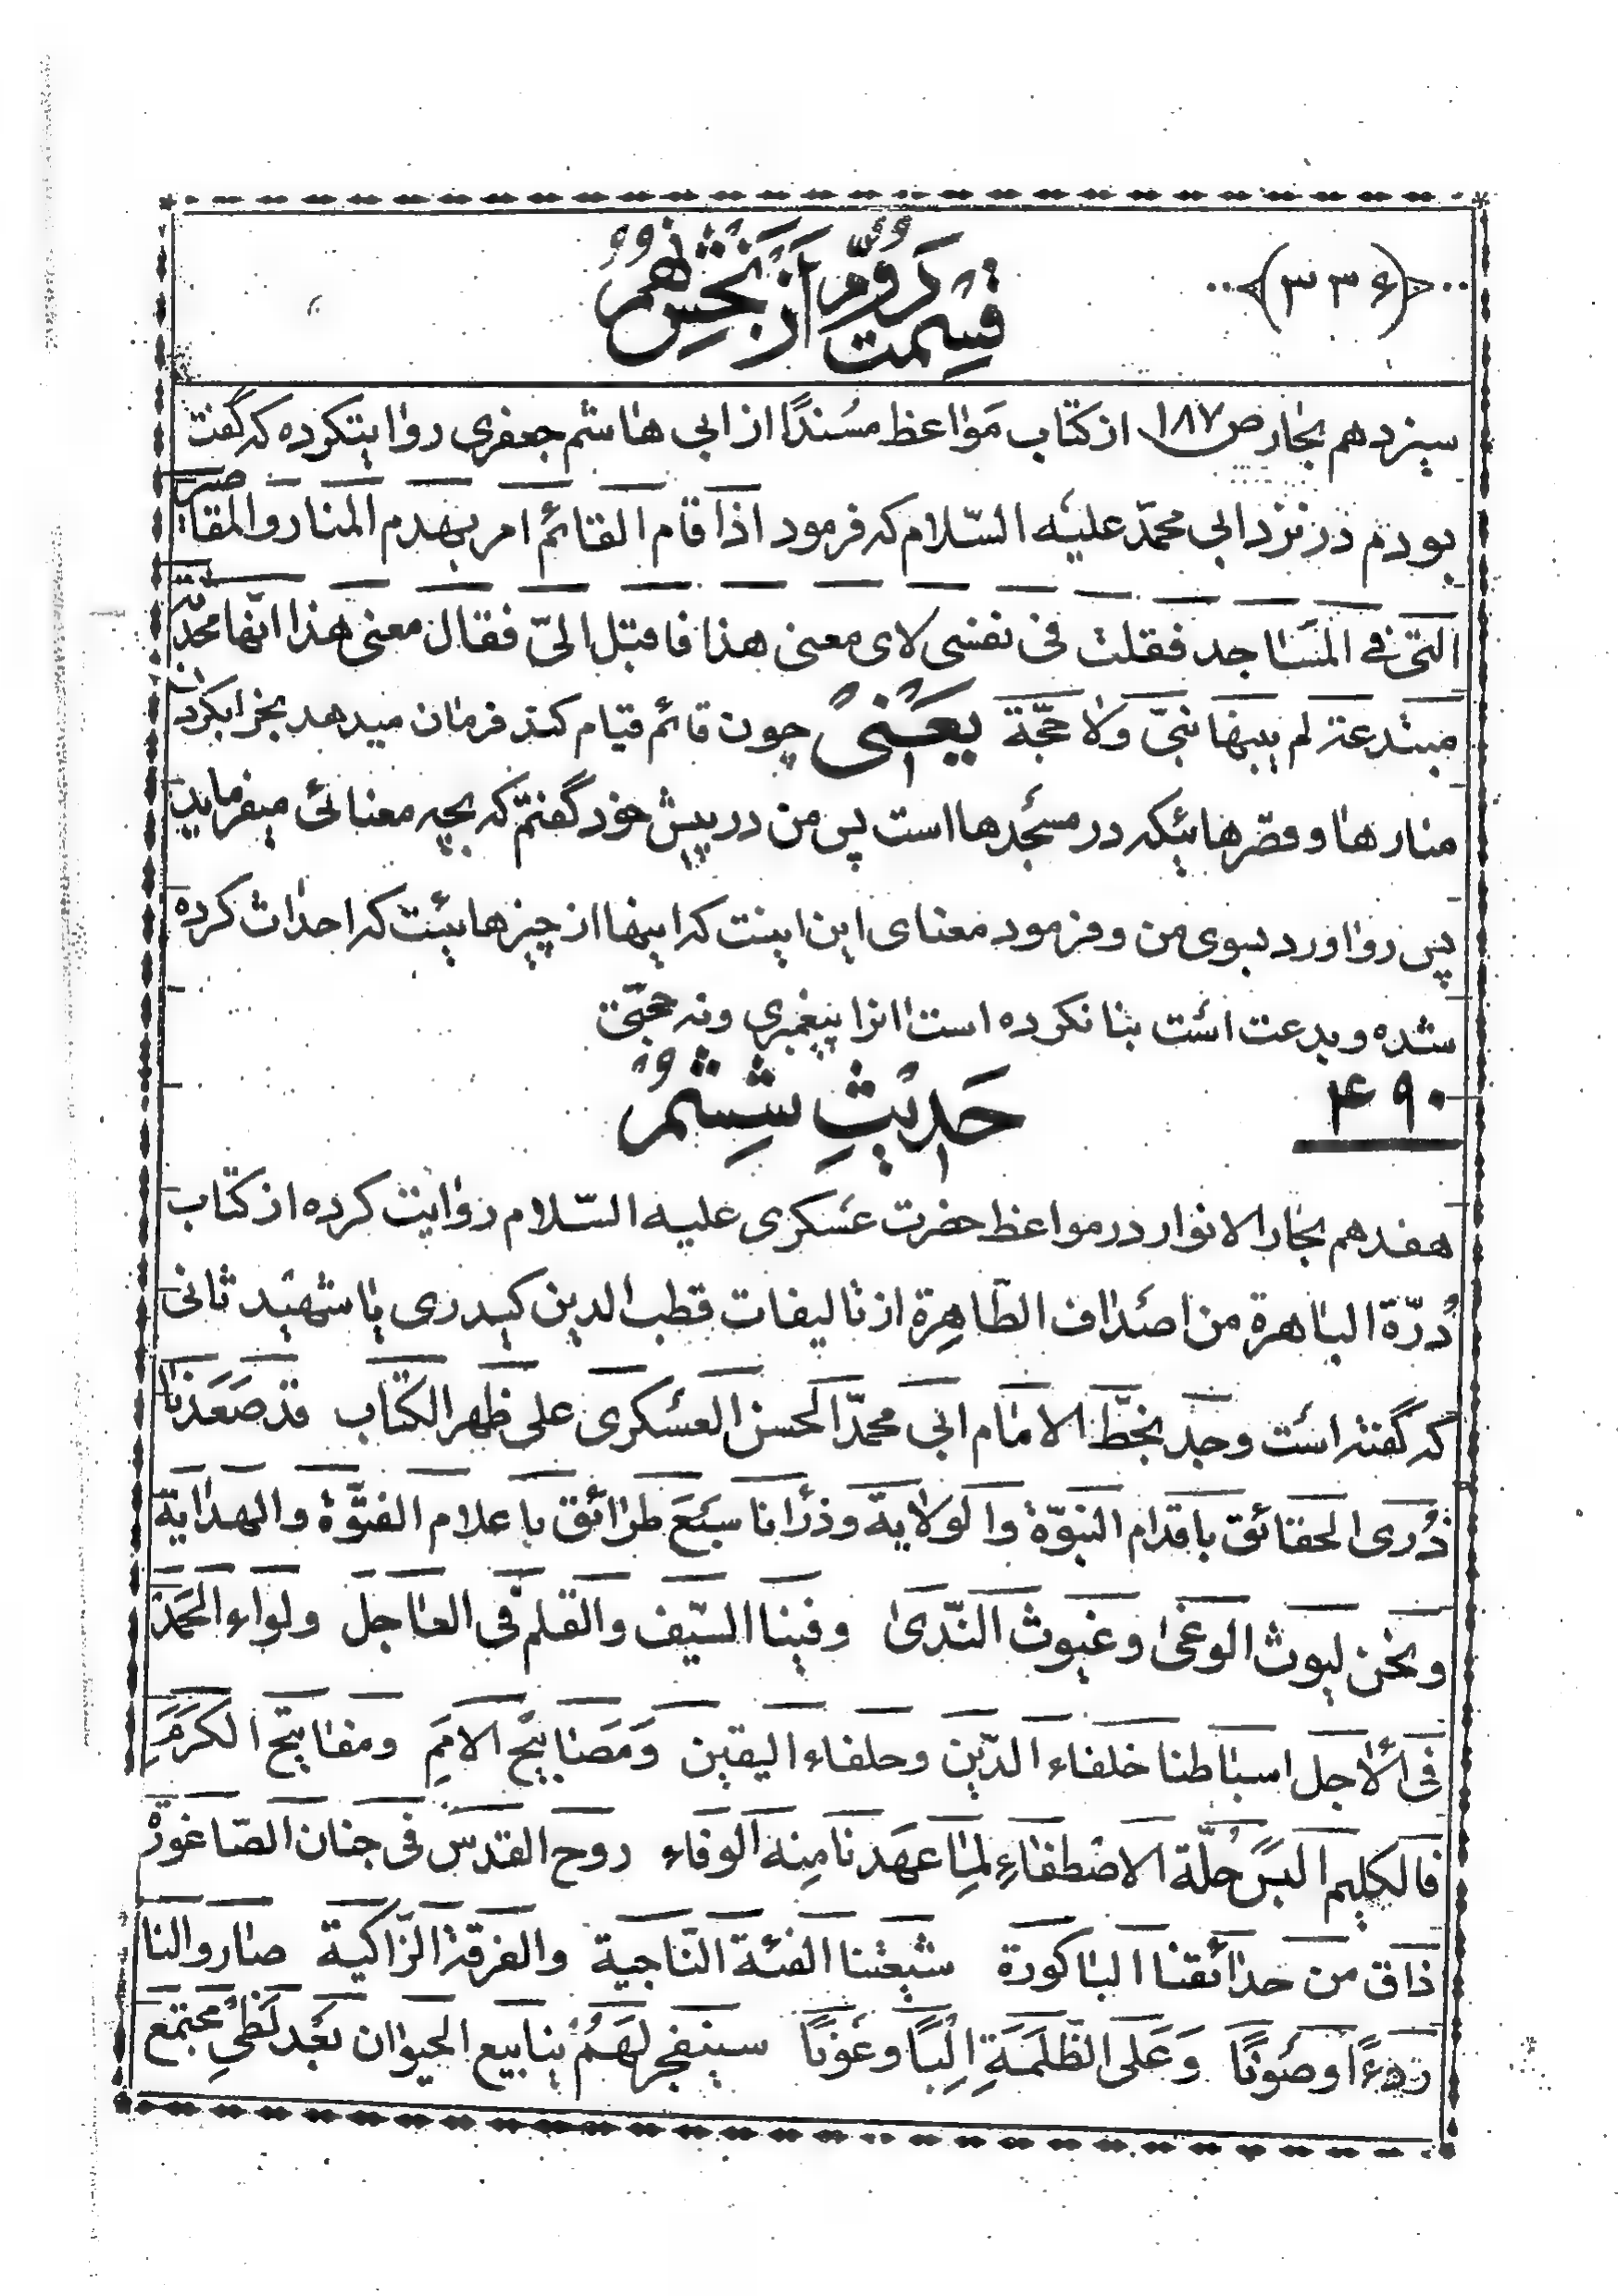 ﴿۳۳۶﴾
قسمت دوّم از بخش نهم
سیزدهم بحار ص۱۸۷ از کتاب مواعظ مسندًا از ابی هاشم جعفری روایتکرده که گفت
بودم در نزد ابی محمّد علیه السّلام که فرمود اذا قام القائم امر بهدم المنار و المقاصیر
التی فی المساجد فقلت فی نفسی لای معنی هذا فاقبل الیّ فقال معنی هذا انّها محدثة
مبتدعة لم یبنها نبیّ ولا حجّة یعنی چون قائم قیام کند فرمان میدهد بخرابکردن
منارها و قصرهائیکه در مسجدها است پس من در پیش خود گفتم که بچه معنائی میفرماید
پس رو اورد بسوی من و فرمود معنای این اینست که اینها از چیزهائیست که احداث کرده
شده و بدعت است بنا نکرده است انرا پیغمبری و نه حجّتی
۴۹۰
حدیث ششم
هفدهم بحار الانوار در مواعظ حضرت عسکری علیه السّلام روایت کرده از کتاب
دُرّة الباهرة من اصداف الطّاهِرة از تالیفات قطب الدین کیدری یا شهید ثانی
که گفته است وجد بخطّ الامام ابی محمّد الحسن العسکری علی ظهر الکتاب قد صَعَدنا
ذُری الحقائق باقدام النبوّة و الولایة و ذرانا سَبعَ طرائق باعلام الفتوّة و الهدایة
و نحن لیوث الوغی و غیوث النّدی و فینا السّیف و القلم فی العاجل و لواء الحمد
فی الأجل اسباطنا خلفاء الدّین و حلفاء الیقین وَمَصابیح الامَمِ و مفاتیح الکرَمِ
فالکلیم البس حُلّة الاصْطفاءِ لِما عهدنا مِنه الوفاء روح القدس فی جنان الصّاغورة
ذاق من حدائقنا الباکورة شیعتنا الفئة النّاجیة و الفرقة الزّاکیة صاروا لنا
ردءًا و صَونًا وَ عَلی الظّلَمَةِ اِلبًا و عَونًا سینفجر لهَم ینابیع الحیوان بَعد لَظیٍ مجتمع